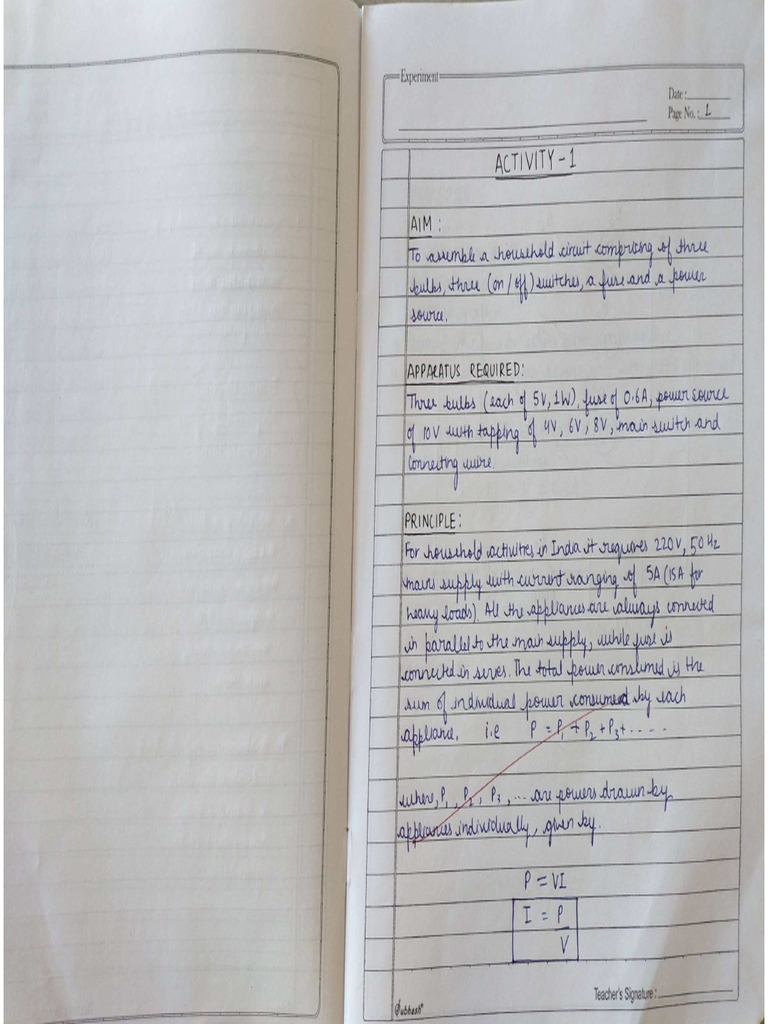 Experiment
Date :
Page No. : 1
ACTIVITY - 1
AIM :
To assemble a household circuit comprising of three
bulbs, three (on/off) switches, a fuse and a power
source.
APPARATUS REQUIRED:
Three bulbs (each of 5V, 1W), fuse of 0.6A, power source
of 10V with tapping of 4V, 6V, 8V, main switch and
connecting wire.
PRINCIPLE:
For household activities in India it requires 220V, 50Hz
mains supply with current ranging of 5A (15A for
heavy loads). All the appliances are always connected
in parallel to the main supply, while fuse is
connected in series. The total power consumed is the
sum of individual power consumed by each
appliance. i.e P = P₁ + P₂ + P₃ + .....
where, P₁, P₂, P₃, ... are powers drawn by
appliances individually, given by.
P = VI
I = P/V
Teacher's Signature :